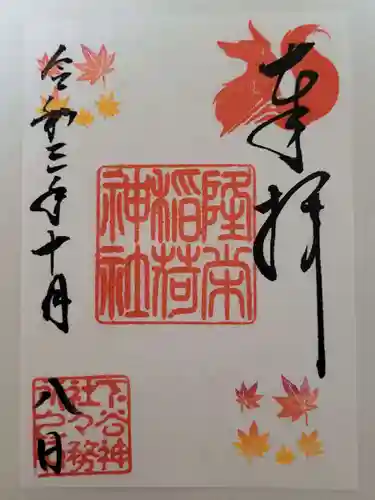 奉拝
隆栄
稲荷
神社
令和三年十月
八日
下谷神
社々務